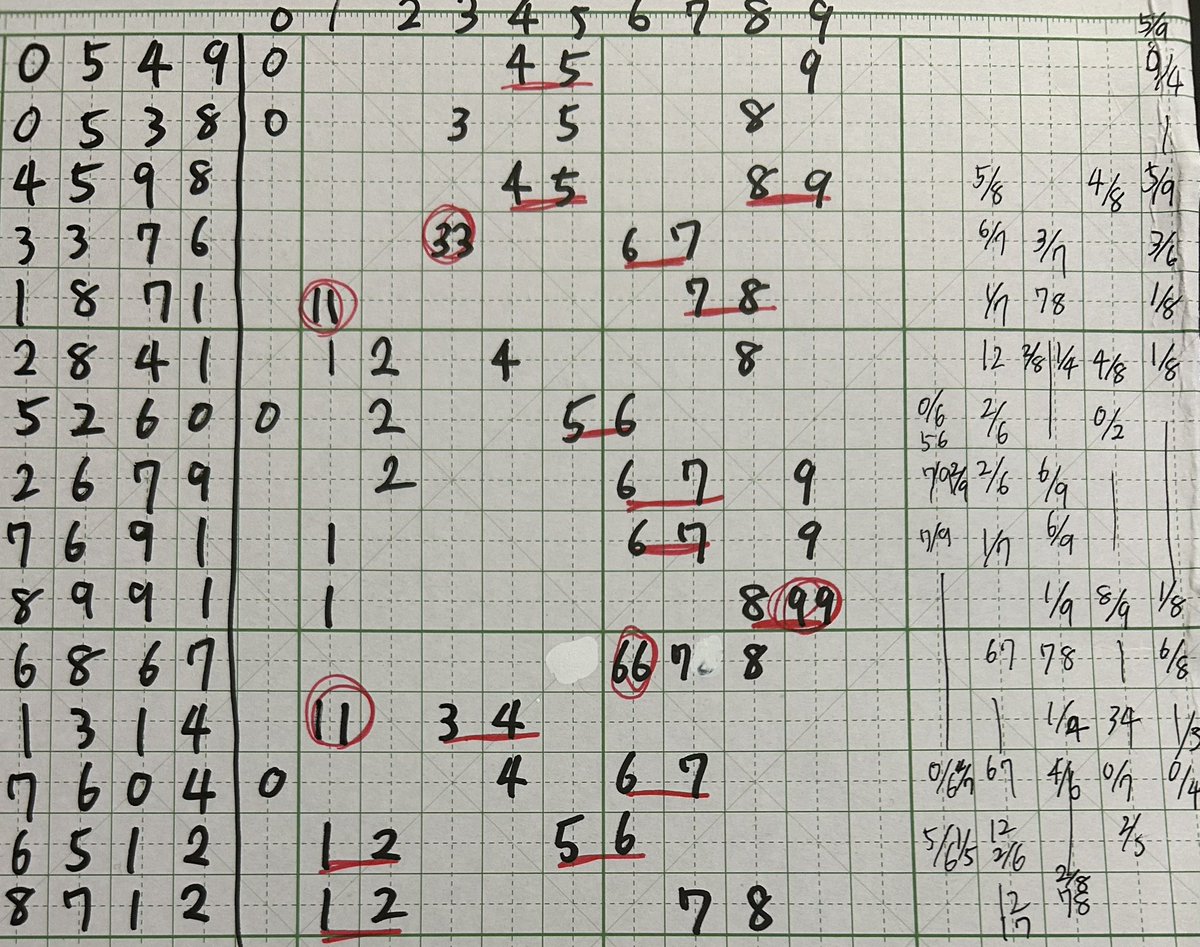 0 1 2 3 4 5 6 7 8 9 5/9
0 5 4 9 0 4 5 9 0/4
0 5 3 8 0 3 5 8 1
4 5 9 8 4 5 8 9 5/8 4/8 5/9
3 3 7 6 33 6 7 6/7 3/7 3/6
1 8 7 1 11 7 8 1/7 78 1/8
2 8 4 1 1 2 4 8 12 2/8 1/4 4/8 1/8
5 2 6 0 0 2 5 6 0/6 2/6 0/2
56
2 6 7 9 2 6 7 9 2/9 2/6 6/9
7 6 9 1 1 6 7 9 7/9 1/7 6/9
8 9 9 1 1 8 99 1/9 8/9 1/8
6 8 6 7 66 7 8 67 78 6/8
1 3 1 4 11 3 4 1/4 34 1/3
7 6 0 4 0 4 6 7 0/6 67 4/6 0/7 0/4
6 5 1 2 1 2 5 6 5/6 1/5 12 2/5
2/6
8 7 1 2 1 2 7 8 12 2/8
17 78